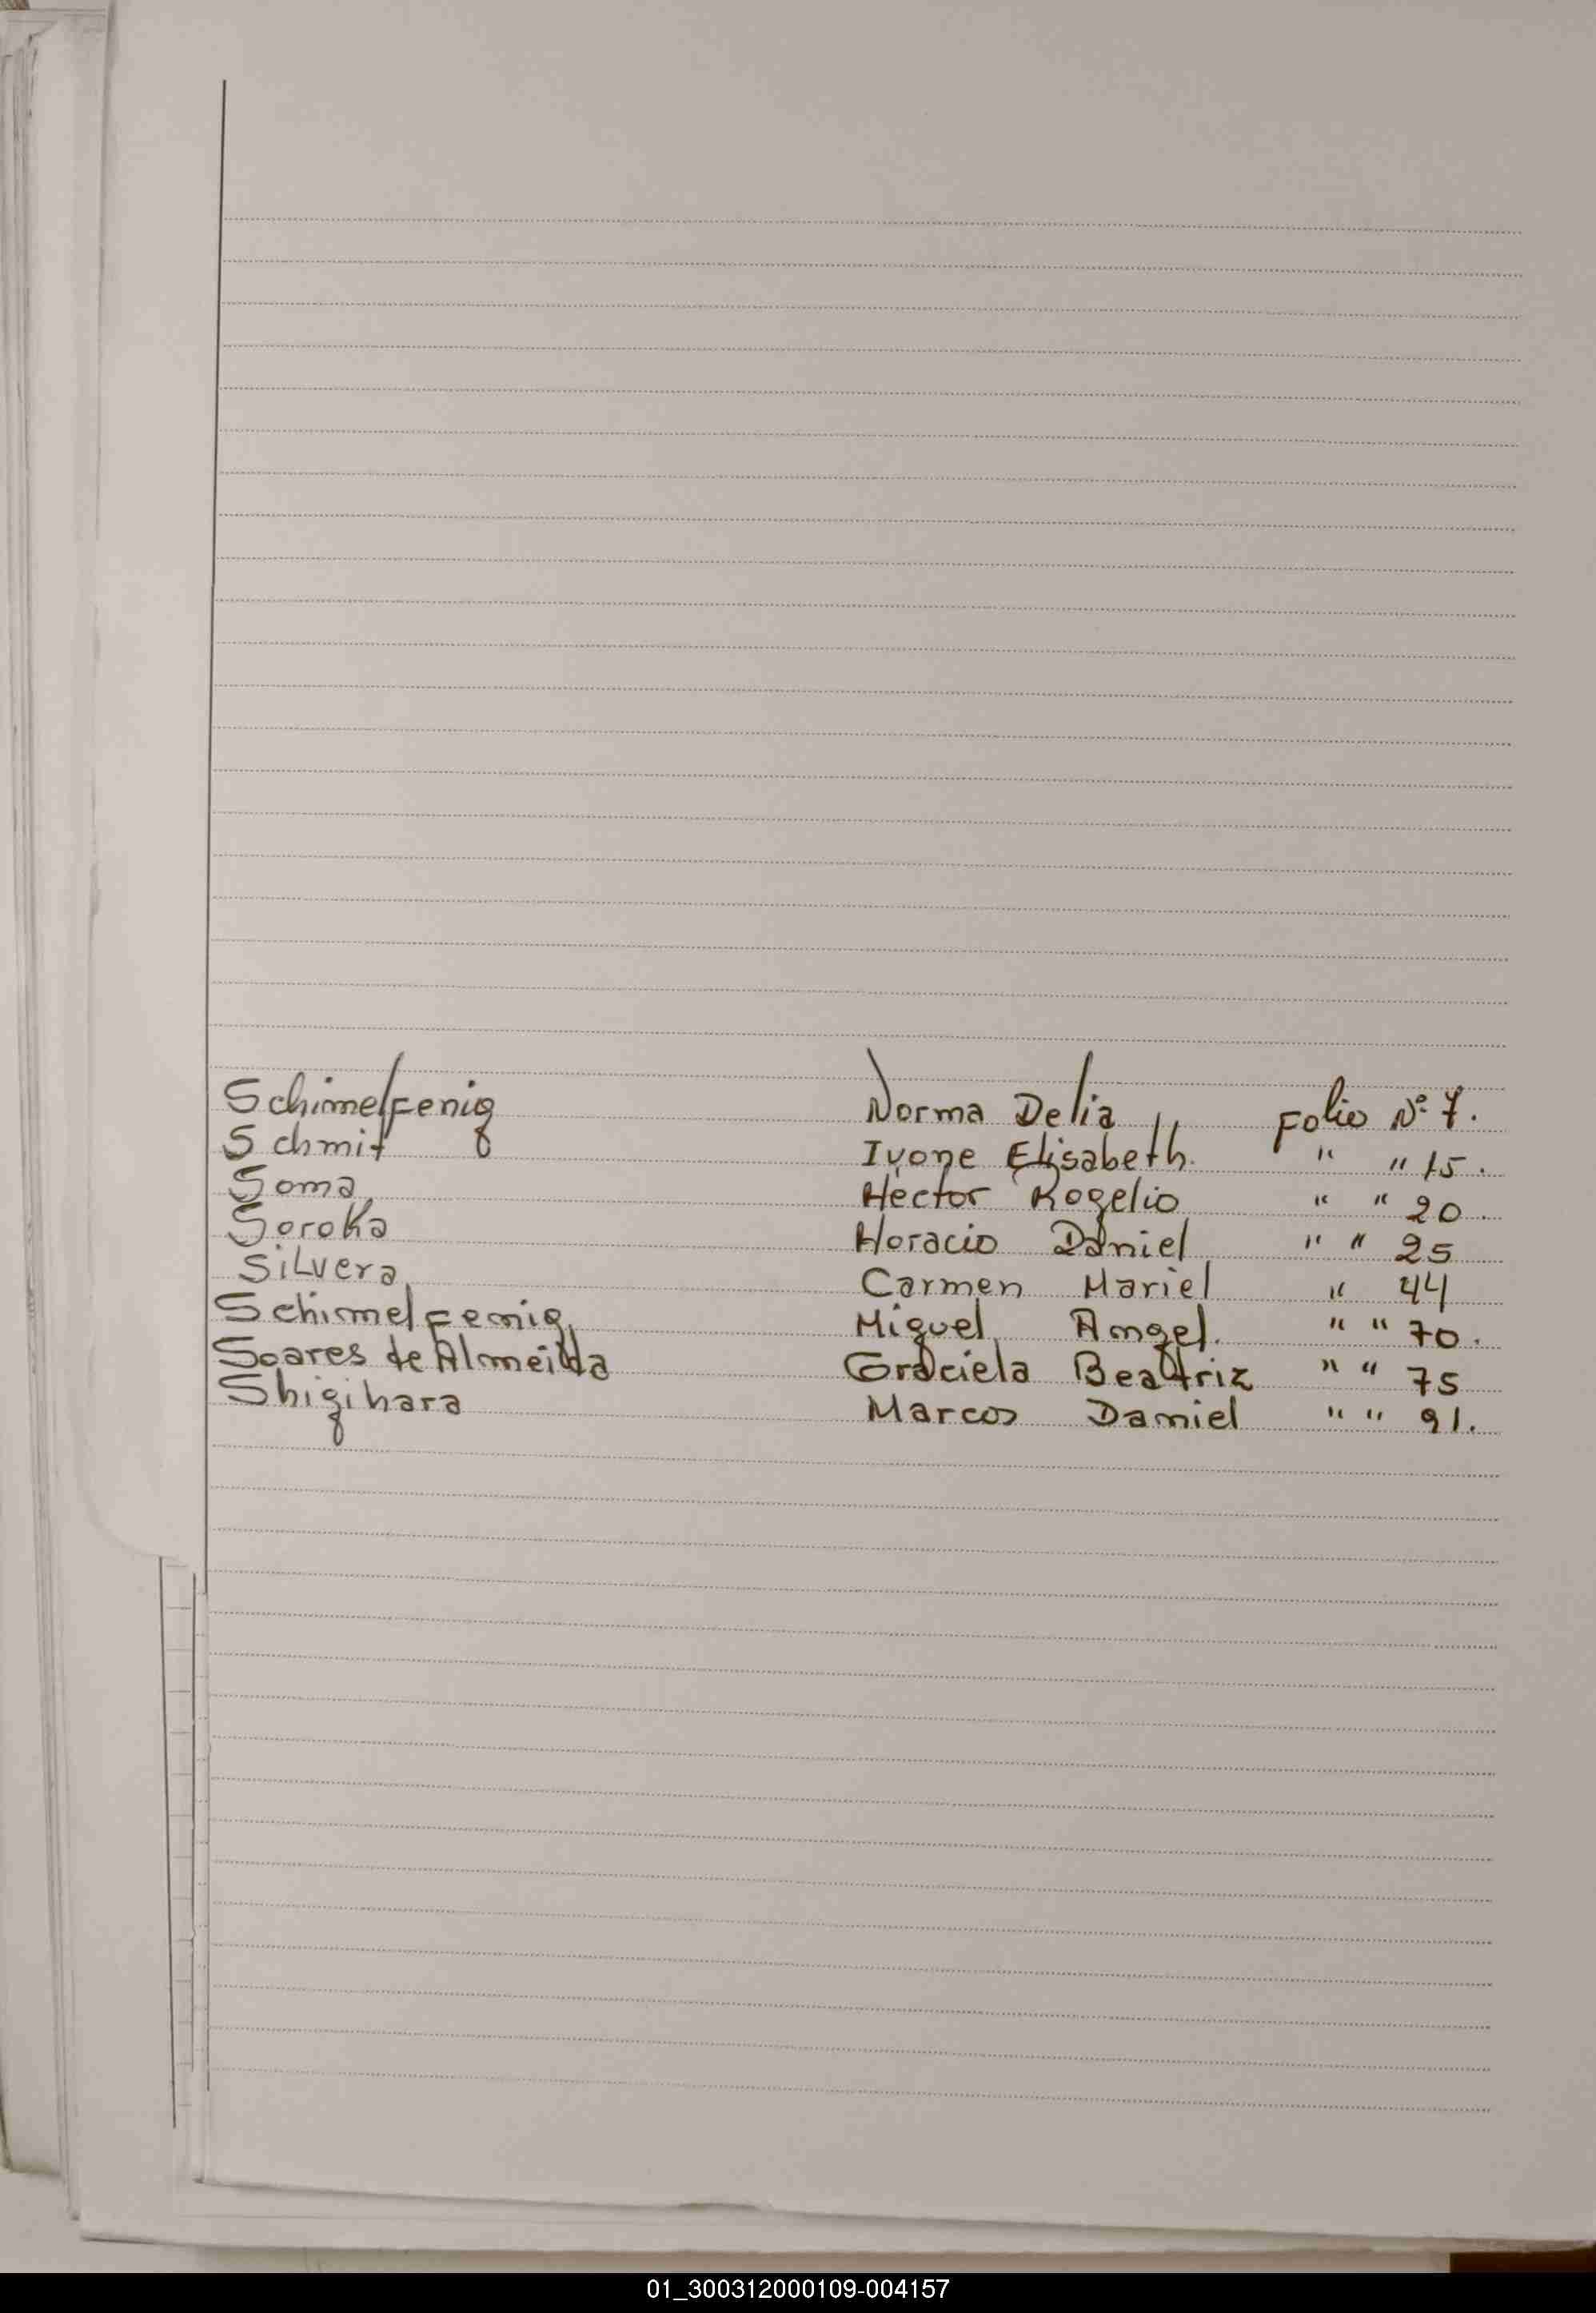 Schimelfenig Norma Delia Folio Nº 7.
Schmit Ivone Elisabeth. " " 15.
Soma Hector Rogelio " " 20.
Soroka Horacio Daniel " " 25
Silvera Carmen Mariel " 44
Schimelfenig Miguel Angel. " " 70.
Soares de Almeida Graciela Beatriz " " 75
Shigihara Marcos Daniel " " 91.
01_300312000109-004157